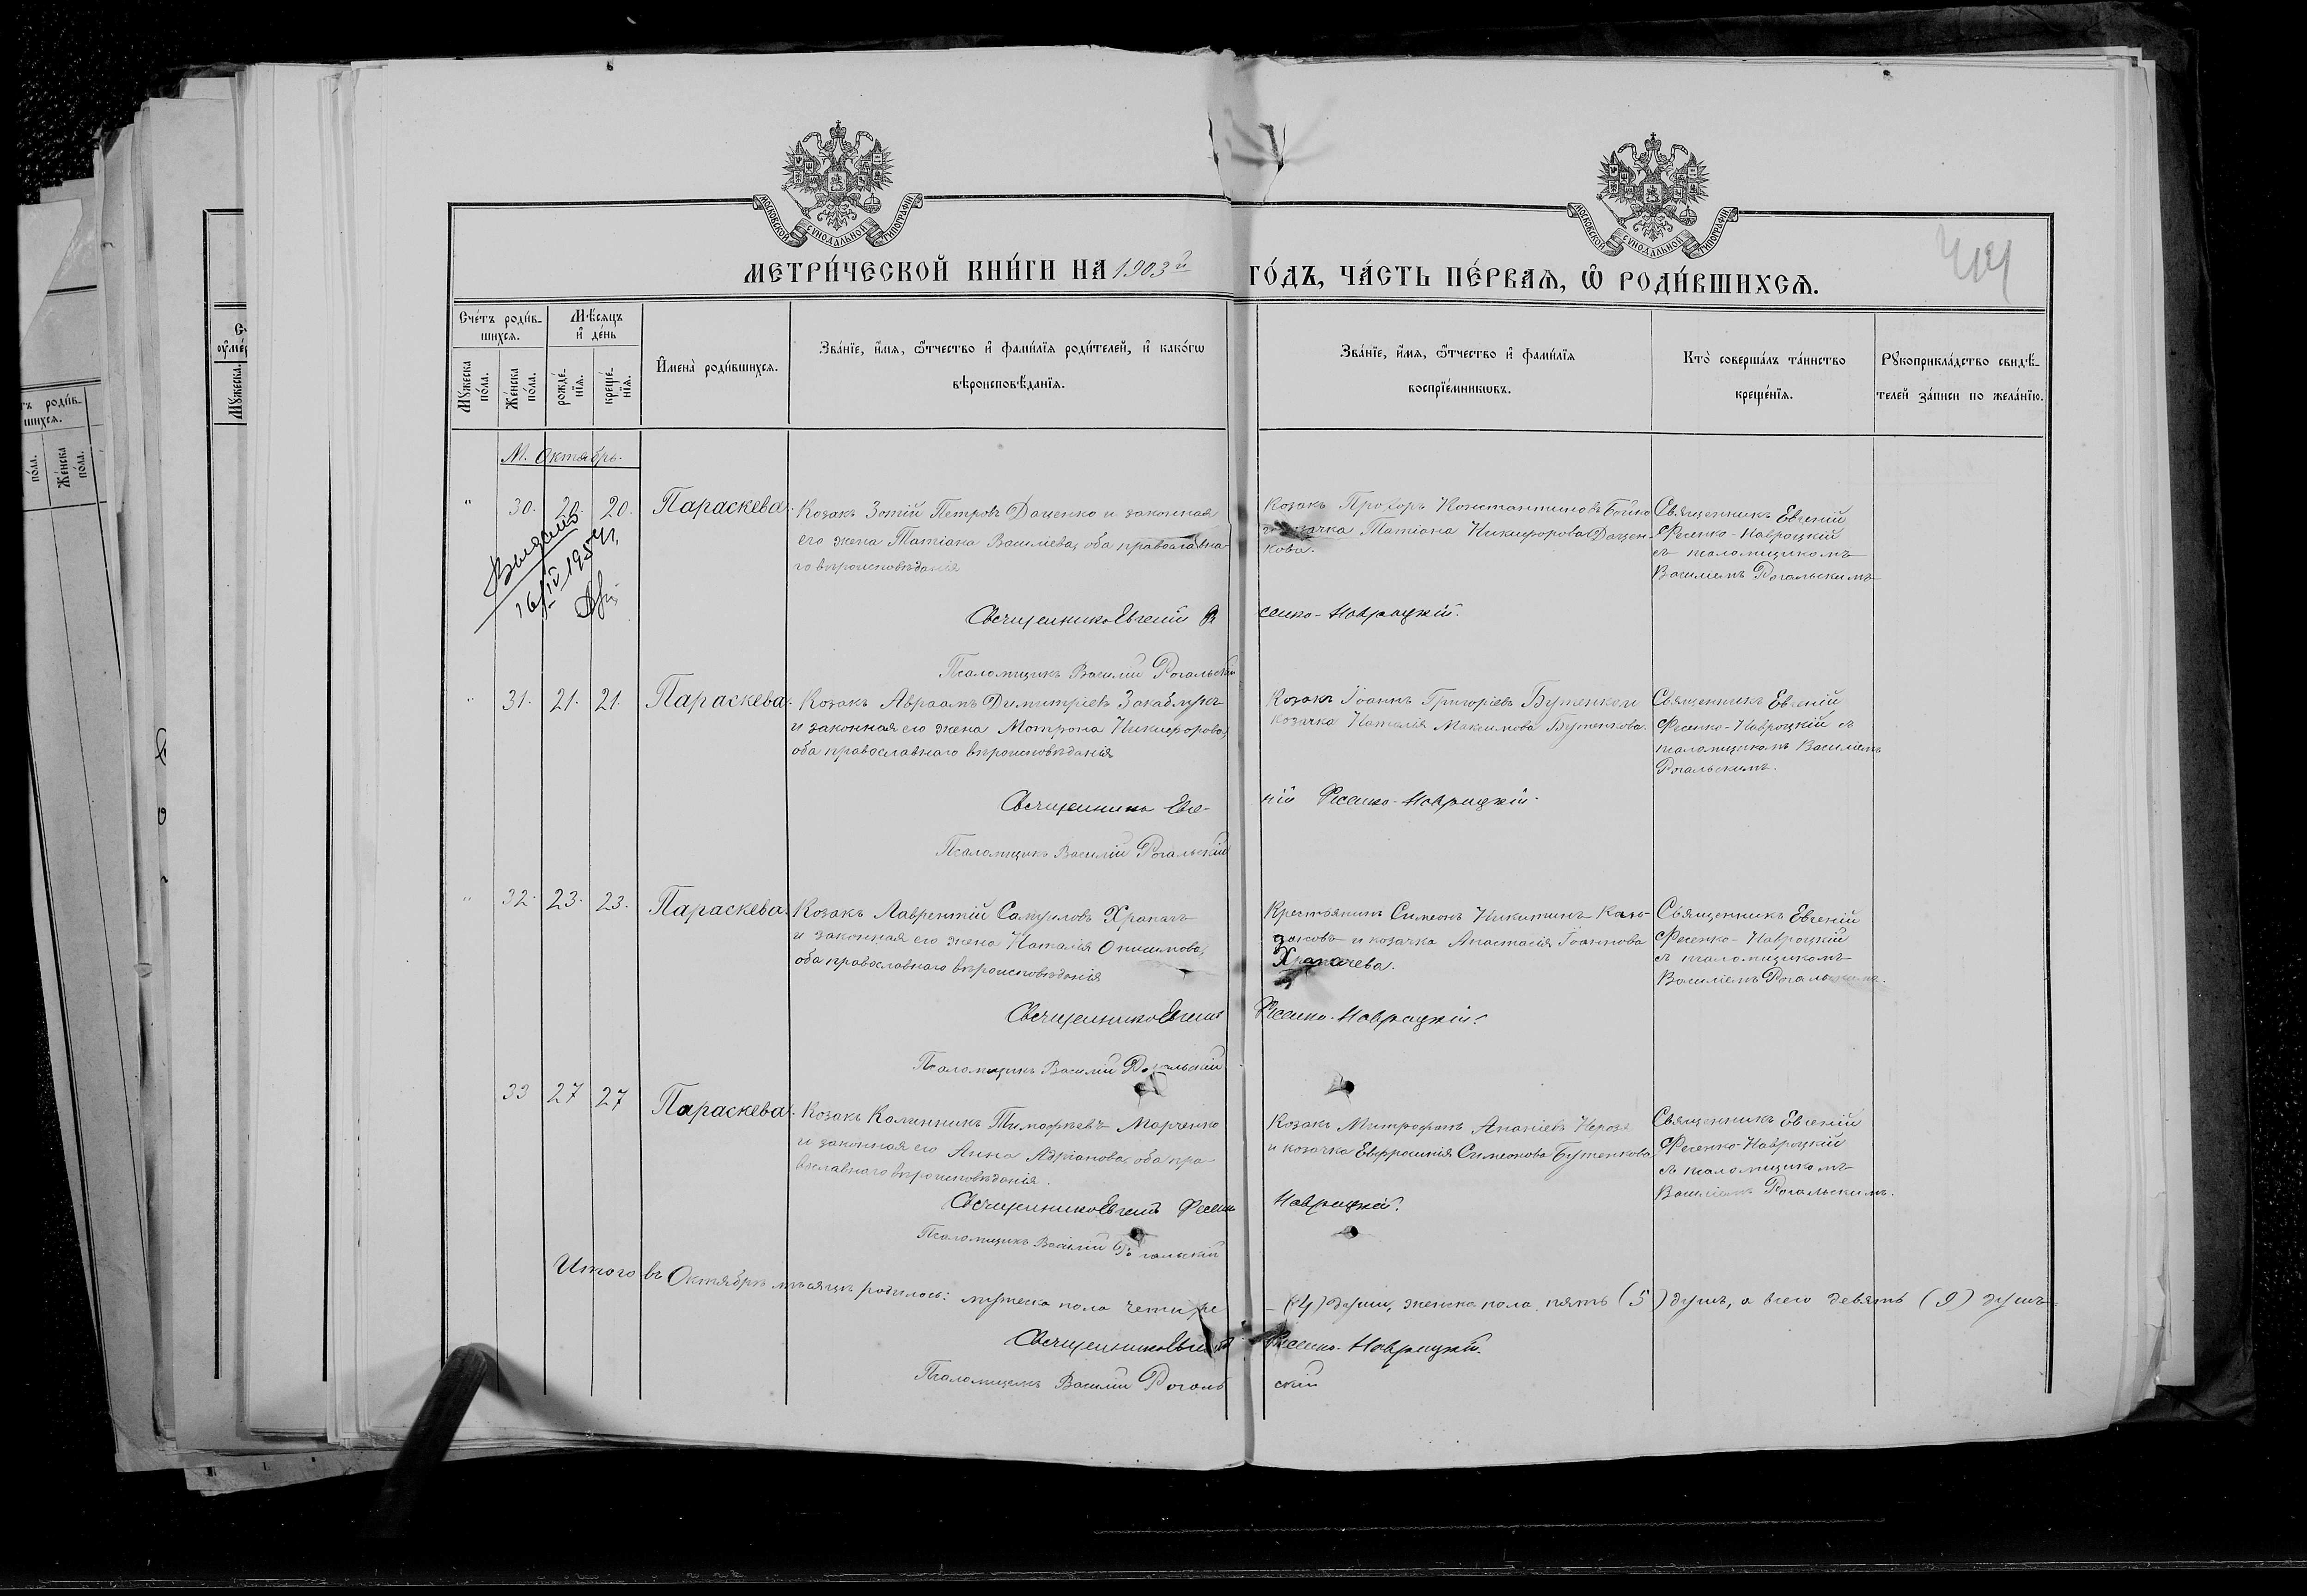 МОСКОВСКОЙ СѴНОДАЛЬНОЙ ТИПОГРАФІИ
МОСКОВСКОЙ СѴНОДАЛЬНОЙ ТИПОГРАФІИ
МЕТРИ́ЧЕСКОЙ КНИ́ГИ НА 1903й ГО́ДЪ, ЧА́СТЬ ПЕ́РВАѦ, Ѽ РОДИ́ВШИХСѦ.
Сче́тъ роди́в-
шихсѧ.
Мѣ́сѧцъ
и҆ де́нь
Мꙋ́жеска
по́ла.
Же́нска
по́ла.
рожде́-
нїѧ.
креще́-
нїѧ.
И҆мена̀ роди́вшихсѧ.
Зва́нїе, и҆́мѧ, ѻ҆́тчество и҆ фами́лїѧ роди́телей, и҆ како́гѡ
вѣроисповѣ́данїѧ.
Зва́нїе, и҆́мѧ, ѻ҆́тчество и҆ фами́лїѧ
воспрїе́мникѡвъ.
Кто̀ соверша́лъ та́инство
креще́нїѧ.
Рꙋкоприкла́дство свидѣ́-
телей за́писи по жела́нїю.
М. Октябрь.
" 30. 20. 20. Параскева.
Козакъ Зотій Петровъ Даценко и законная
его жена Татіана Васильева, оба православна-
го вѣроисповѣданія
Козакъ Прохоръ Константиновъ Бойко
Татіана Никифорова Дацен-
кова.
Священникъ Евгеній
Фесенко-Навроцкій
съ псаломщикомъ
Василіемъ Рогальскимъ
Выдано
16/IV 1954
Священникъ Евгеній Фесенко-Навроцкій.
Псаломщикъ Василій Рогальскій
" 31. 21. 21. Параскева.
Козакъ Авраамъ Димитріевъ Закаблукъ
и законная его жена Мотрона Никифорова,
оба православнаго вѣроисповѣданія
Козакъ Іоаннъ Григоріевъ Бутенко и
козачка Наталія Максимова Бутенкова.
Священникъ Евгеній
Фесенко-Навроцкій съ
псаломщикомъ Василіемъ
Рогальскимъ.
Священникъ Евгеній Фесенко-Навроцкій.
Псаломщикъ Василій Рогальскій
" 32. 23. 23. Параскева.
Козакъ Лаврентій Самуиловъ Храпачъ
и законная его жена Наталія Онисимова,
оба православнаго вѣроисповѣданія
Крестьянинъ Симеонъ Никитинъ Каза-
ковъ и козачка Анастасія Іоаннова
Храпачева.
Священникъ Евгеній
Фесенко-Навроцкій
съ псаломщикомъ
Василіемъ Рогальскимъ.
Священникъ Евгеній Фесенко-Навроцкій.
Псаломщикъ Василій Рогальскій
33 27 27 Параскева.
Козакъ Калинникъ Тимофѣевъ Марченко
и законная его Анна Адріанова, оба пра-
вославнаго вѣроисповѣданія.
Козакъ Митрофанъ Ананіевъ
и козачка Евфросинія Симеонова Бутенкова
Священникъ Евгеній
Фесенко-Навроцкій
съ псаломщикомъ
Василіемъ Рогальскимъ.
Священникъ Евгеній Фесенко Навроцкій.
Псаломщикъ Василій Рогальскій
Итого въ Октябрѣ мѣсяцѣ родилось: мужеска пола четыре – (4) души, женска пола пять (5) душъ, а всего девять (9) душъ
Священникъ Евгеній Фесенко-Навроцкій.
Псаломщикъ Василій Рогальскій